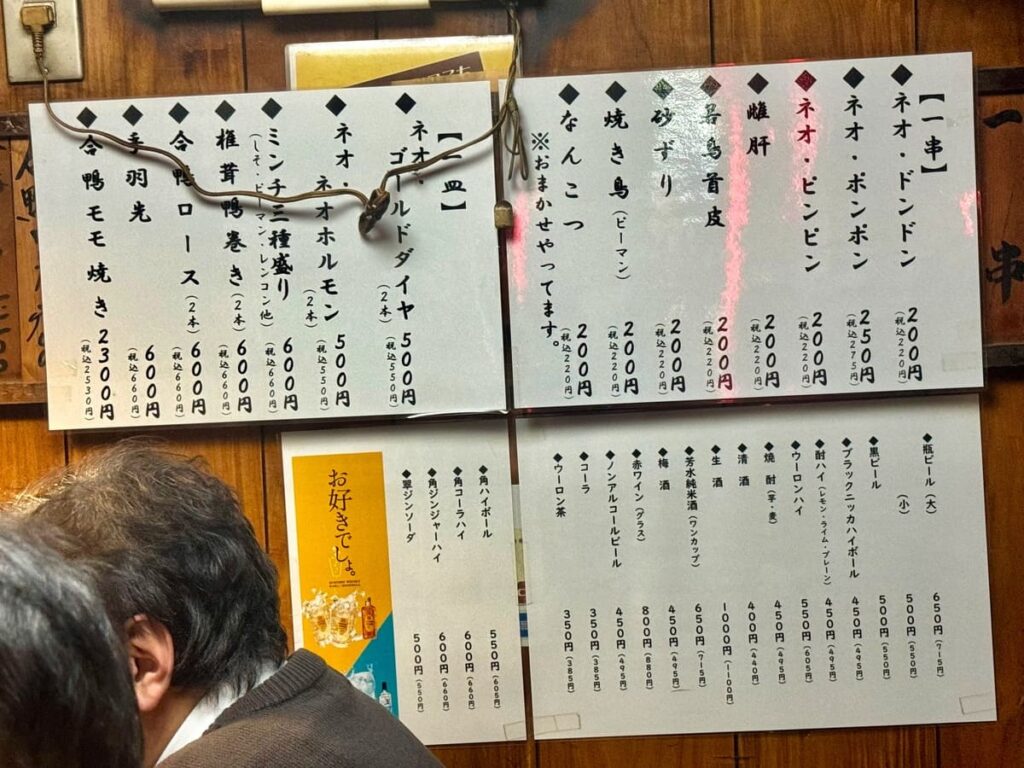 【一串】
◆ネオ・ドンドン 200円(税込220円)
◆ネオ・ポンポン 250円(税込275円)
◆ネオ・ピンピン 200円(税込220円)
◆雌肝 200円(税込220円)
鳥首皮 200円(税込220円)
砂ずり 200円(税込220円)
◆焼き鳥(ピーマン) 200円(税込220円)
◆なんこつ 200円(税込220円)
※おまかせやってます。
【一皿】
◆ネオ・ゴールドダイヤ(2本) 500円(税込550円)
◆ネオ・ネオホルモン(2本) 500円(税込550円)
◆ミンチ三種盛り 600円(税込660円)
(しそ・ピーマン・レンコン他)
◆椎茸鴨巻き(2本) 600円(税込660円)
◆合鴨ロース(2本) 600円(税込660円)
◆手羽先 600円(税込660円)
◆合鴨モモ焼き 2300円(税込2530円)
◆瓶ビール(大) 650円(715円)
(小) 500円(550円)
◆黒ビール 500円(550円)
◆ブラックニッカハイボール 450円(495円)
◆酎ハイ(レモン・ライム・プレーン) 450円(495円)
◆ウーロンハイ 550円(605円)
◆焼酎(芋・麦) 450円(495円)
◆清酒 400円(440円)
◆生酒 1000円(1100円)
◆芳水純米酒(ワンカップ) 650円(715円)
◆梅酒 450円(495円)
◆赤ワイン(グラス) 800円(880円)
◆ノンアルコールビール 450円(495円)
◆コーラ 350円(385円)
◆ウーロン茶 350円(385円)
◆角ハイボール 550円(605円)
◆角コーラハイ 600円(660円)
◆角ジンジャーハイ 600円(660円)
◆翠ジンソーダ 500円(550円)
お好きでしょ。
一串